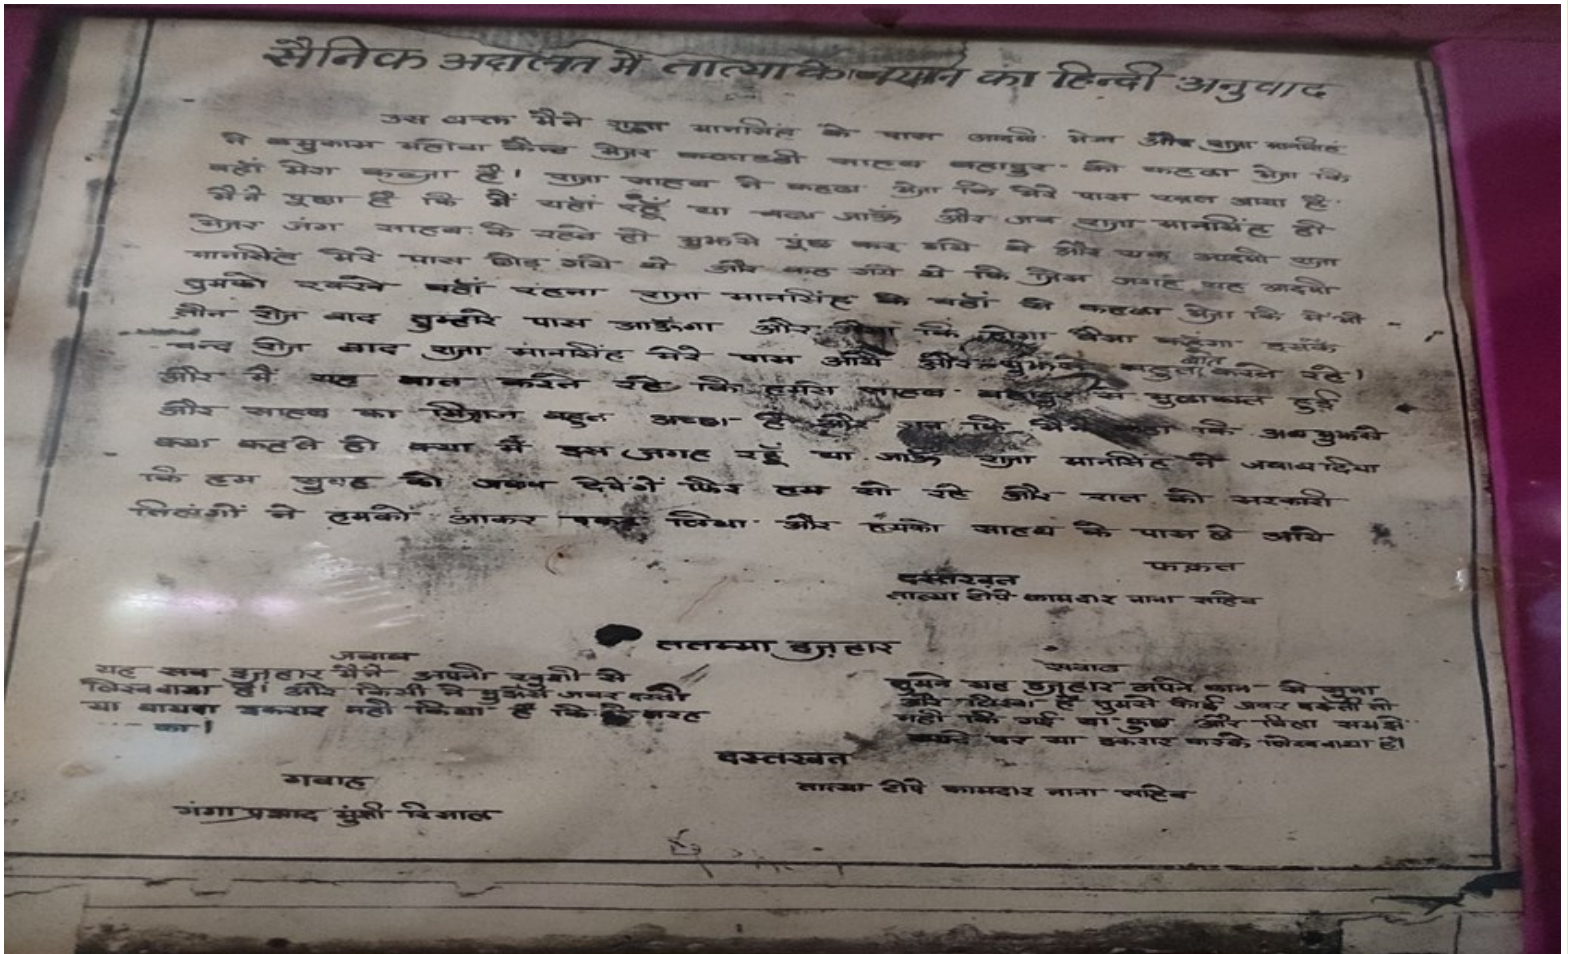 सैनिक अदालत में तात्या के बयान का हिन्दी अनुवाद
उस वक्त मैने राजा मानसिंह के पास आदमी भेजा और राजा मानसिंह
ने बमुकाम महोबा कैन्ट मेजर साहब बहादुर को कहला भेजा कि
वहाँ मेरा कब्जा है। राजा साहब ने कहला भेजा कि मेरे पास आया है
मैने पुछा है कि मैं यहां रहूँ या चला जाऊँ और जब राजा मानसिंह ही
मेजर जंग साहब के रहते ही मुझसे पूंछ कर गये थे और एक आदमी राजा
मानसिंह मेरे पास छोड़ गये थे और कह गये थे कि जिस जगह यह आदमी
तुमको रक्खे वहाँ रहना राजा मानसिंह के वहाँ से कहला भेजा कि मैं भी
तीन रोज बाद तुम्हारे पास आऊँगा और कि होगा वैसा कहूंगा इसके
चन्द रोज बाद राजा मानसिंह मेरे पास आये और मुझसे बहुत बात करते रहे।
और मैं यह बात करते रहे कि हमसे साहब बहादुर से मुलाकात हुई
और साहब का मिजाज बहुत अच्छा है और कि अब मुझसे
क्या कहते हो क्या मैं इस जगह रहूँ या जाऊँ राजा मानसिंह ने जवाब दिया
कि हम सुबह को जवाब देवेंगें फिर हम सो रहे और रात को सरकारी
तिलंगों ने हमको आकर पकड़ लिया और हमको साहब के पास ले आये
फक़त
दस्तखत
तात्या टोपे कामदार नाना साहिब
ततम्मा इज़हार
जवाब
यह सब इज़हार मैंने अपनी खुशी से
लिखवाया है। और किसी ने मुझसे जबर दस्ती
या वायदा इकरार नही किया है कि तरह
का।
सवाल
तुमने यह इज़हार अपने कान से सुना
और लिखा है तुमसे कोई जबर दस्ती तो
नही कि गई या कुछ और बिला समझे
पर या इकरार करके लिखवाया है।
दस्तखत
तात्या टोपे कामदार नाना साहिब
गवाह
गंगा प्रसाद मुंशी रिसाल